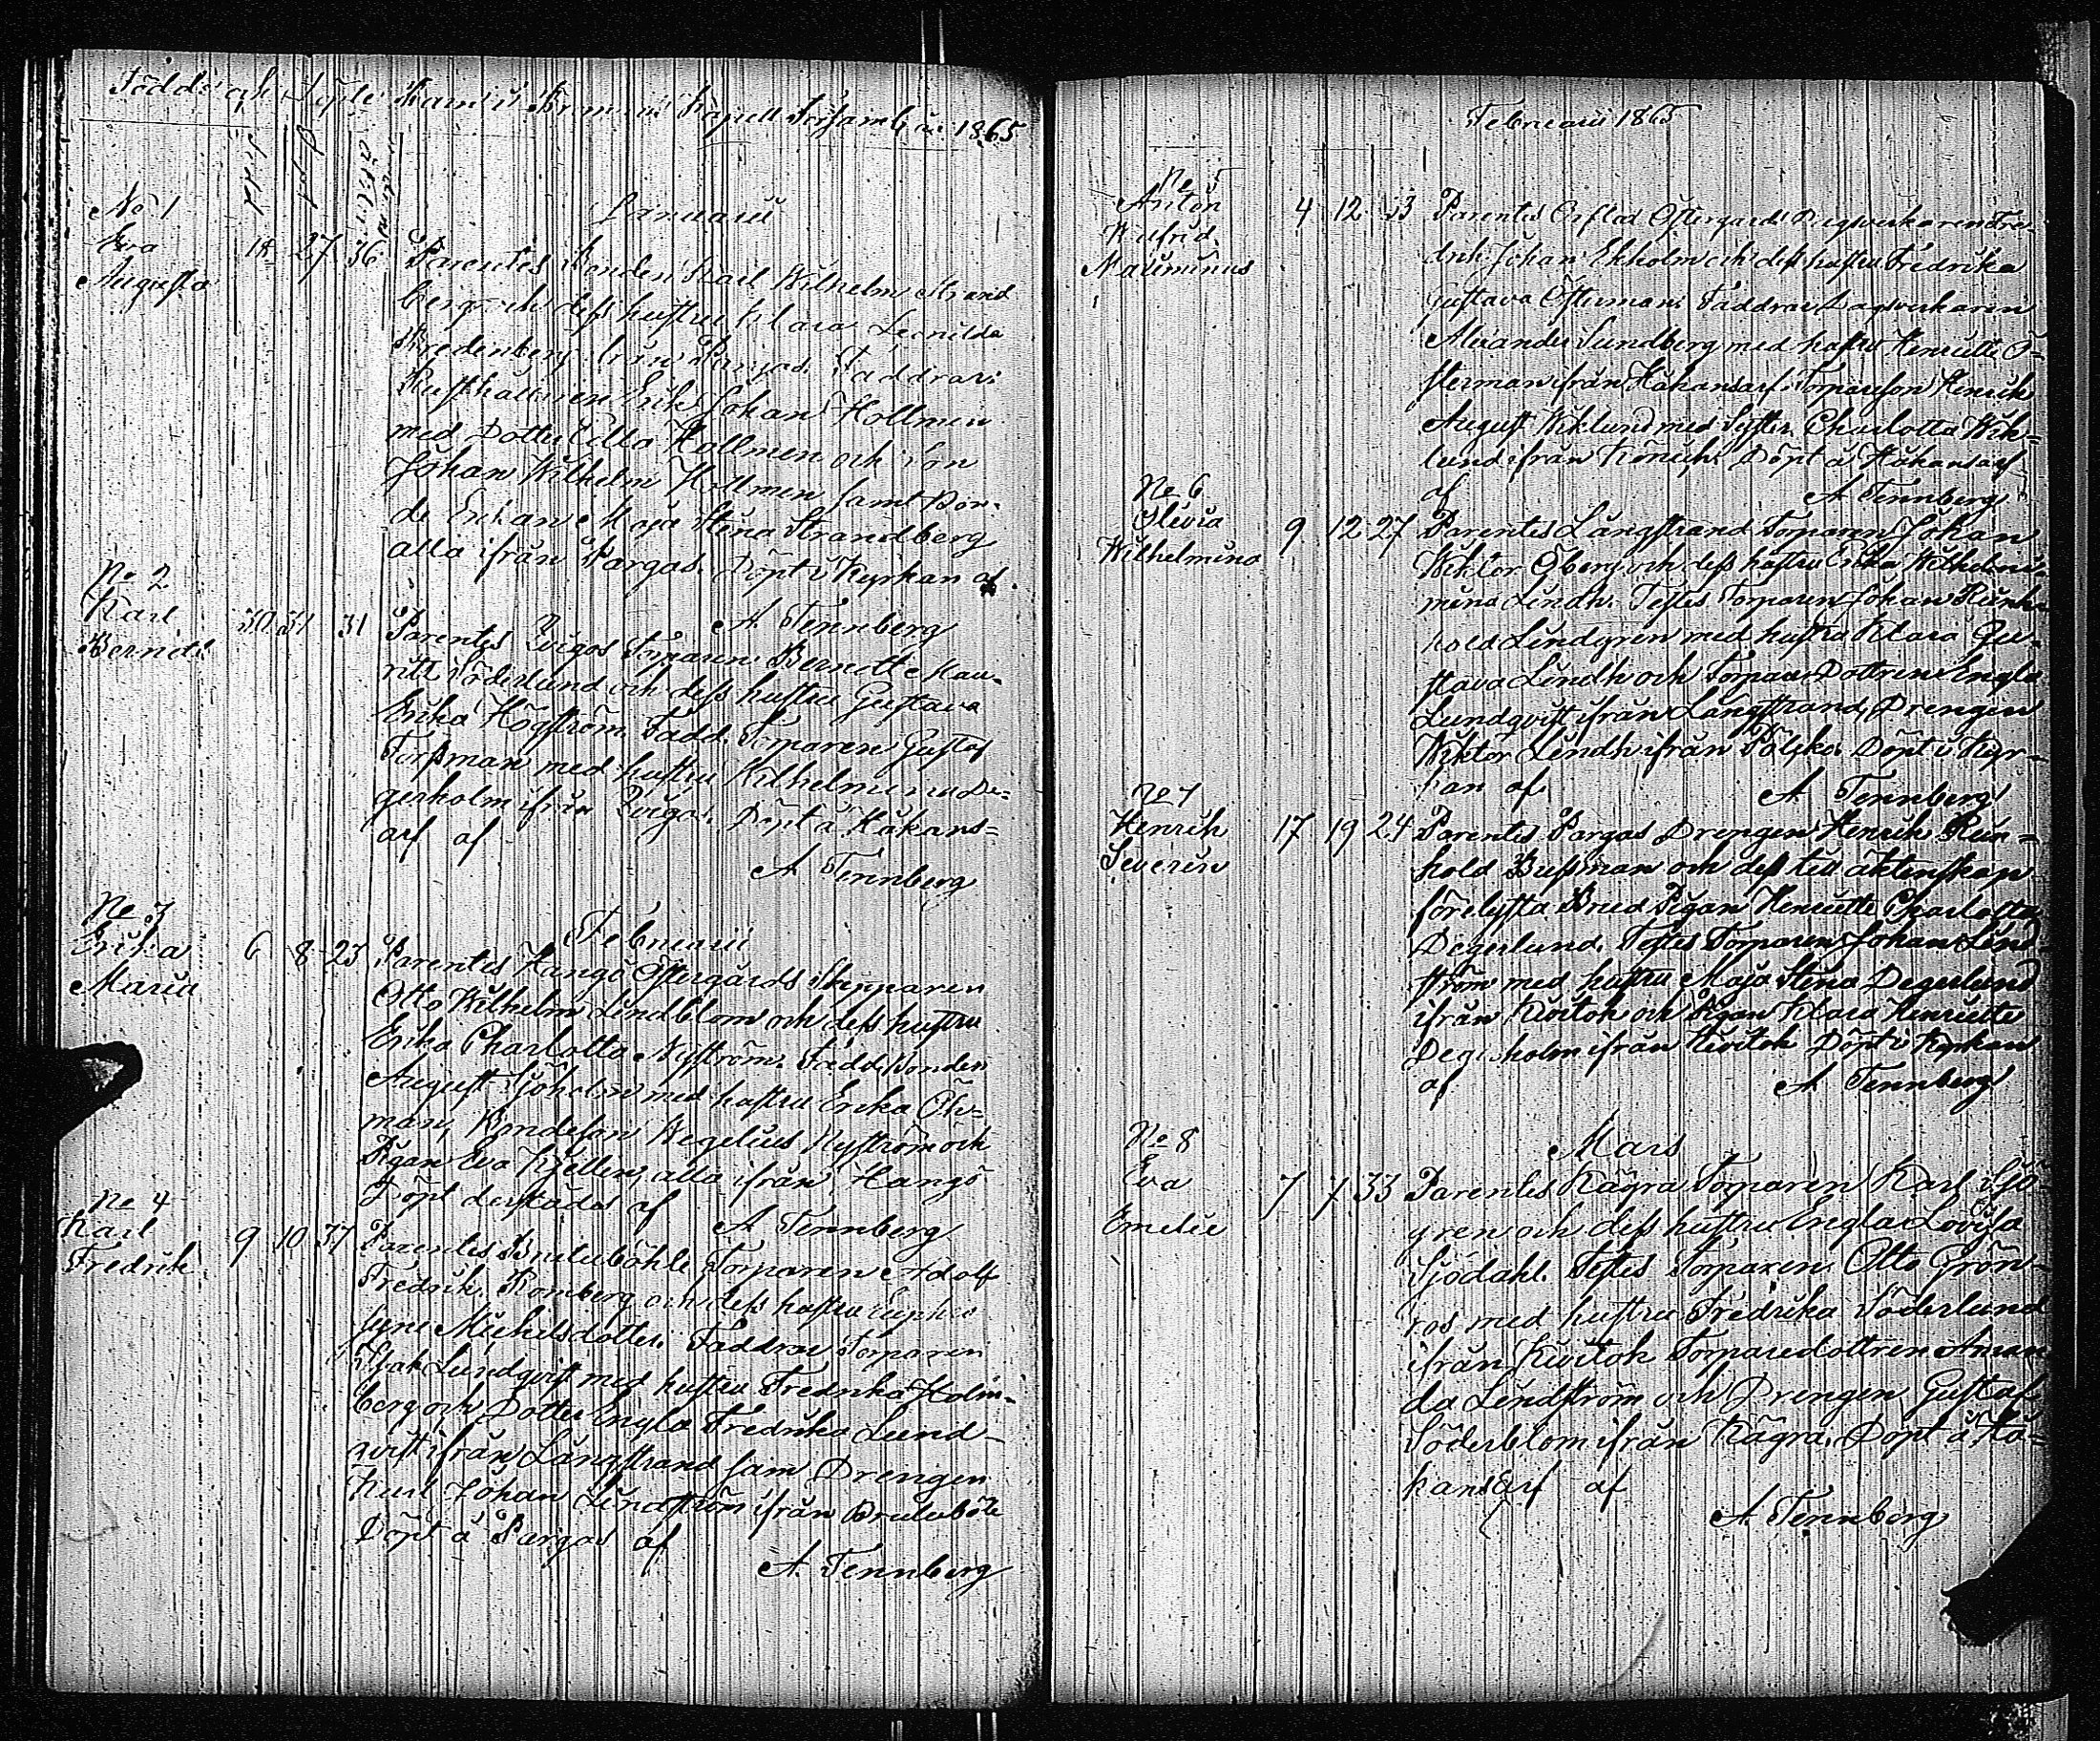 Födde och Döpte Barn i Bromarf Kapell Församl: år 1865
Födde
Döpt
No 1
Januarii
Eva 14 27 36 Parentes Bonden Karl Wilhelm Strand
Augusta berg och dess hustru Klara Leonilda
Bredenberg ifrån Pargas. Faddrar:
Rusthållaren Erik Johan Hollmen
med Dotter Edla Hollmen och Son
Johan Wilhelm Hollmen samt Bon-
de Enkan Maja Stina Strandberg
alla ifrån Pargas. Döpt i Kyrkan af
No 2
A. Tennberg
Karl 30 31 31 Parentes Torparen Berndt Mau-
Berndt ritz Söderlund och dess hustru Gustava
Erika Högström. Fadd. Torparen Gustaf
Forssman med hustru Wilhelmina De-
gerholm ifrån Döpt å Håkans-
arf af
A. Tennberg
No 3
Februarii
Erika 6 8 23 Parentes Hangö Östergårds Skepparen
Maria Otto Wilhelm Lindblom och dess hustru
Erika Charlotta Nyström. Fadd. Bonden
August Sjöholm med hustru Erika Öh-
man, Bondeson Wegelius Nyström och
Pigan Eva Kjellin, alla ifrån Hangö
Döpt derstädes af
No 4
A. Tennberg
Karl 9 10 37 Parentes Bruluböhle Torparen Adolf
Fredrik Fredrik Romberg och dess hustru Euphro
syne Michelsdotter. Faddrar Torparen
Isak Lundqvist med hustru Fredrika Holm-
berg och Dotter Engla Fredrika Lund-
qvist ifrån Långstrand sam Drengen
Karl Johan Lindström ifrån Bruluböle
Döpt å Pargas af
A. Tennberg
Februarii 1865
No 5
Anton 4 12 33 Parentes Östergårds Dagsverkaren Fre-
Wilfrid drik Johan Ekholm och dess hustru Fredrika
Maximinus Gustava Österman. Faddrar Dagsverkaren
Alexander Sundberg med hustru Henriette Ö-
sterman ifrån Håkansarf. Torpareson Henrik
August Wiklund med Syster Charlotta Wik-
lund ifrån Döpt å Håkansarf
af A. Tennberg
No 6
Olivia 9 12 27 Parentes Långstrand Torparen Johan
Wilhelmina Wiktor Öberg och dess hustru Erika Wilhelmi-
mina Lindh. Testes Torparen Johan Rein-
hold Lindgren med hustru Klara Gu-
stava Lindh och Torpare Dottren Engla
Lundqvist ifrån Långstrand, Drengen
Wiktor Lindh ifrån Döpt i Kyr-
kan af
A. Tennberg
No 7
Henrik 17 19 24 Parentes Pargas Drengen Henrik Rein-
Severin hold Bussman och dess till äktenskap
förelysta Brud Pigan Henriette Charlotta
Degerlund. Testes Torparen Johan Lind
ström med hustru Maja Stina Degerlund
ifrån Kivitok och Pigan Klara Henriette
Degerholm ifrån Kivitok Döpt i Kyrkan
af A. Tennberg
No 8
Mars
Eva 7 7 33 Parentes Kägra Torparen Karl Sjö-
Emelie gren och dess hustru Engla Lovisa
Sjödahl. Testes Torparen Otto Grön-
ros med hustru Fredrika Söderlund
ifrån Kivitok Torparedottren Aman
da Lindström och Drengen Gustaf
Söderblom ifrån Kägra. Döpt å Hå-
kansarf af
A. Tennberg